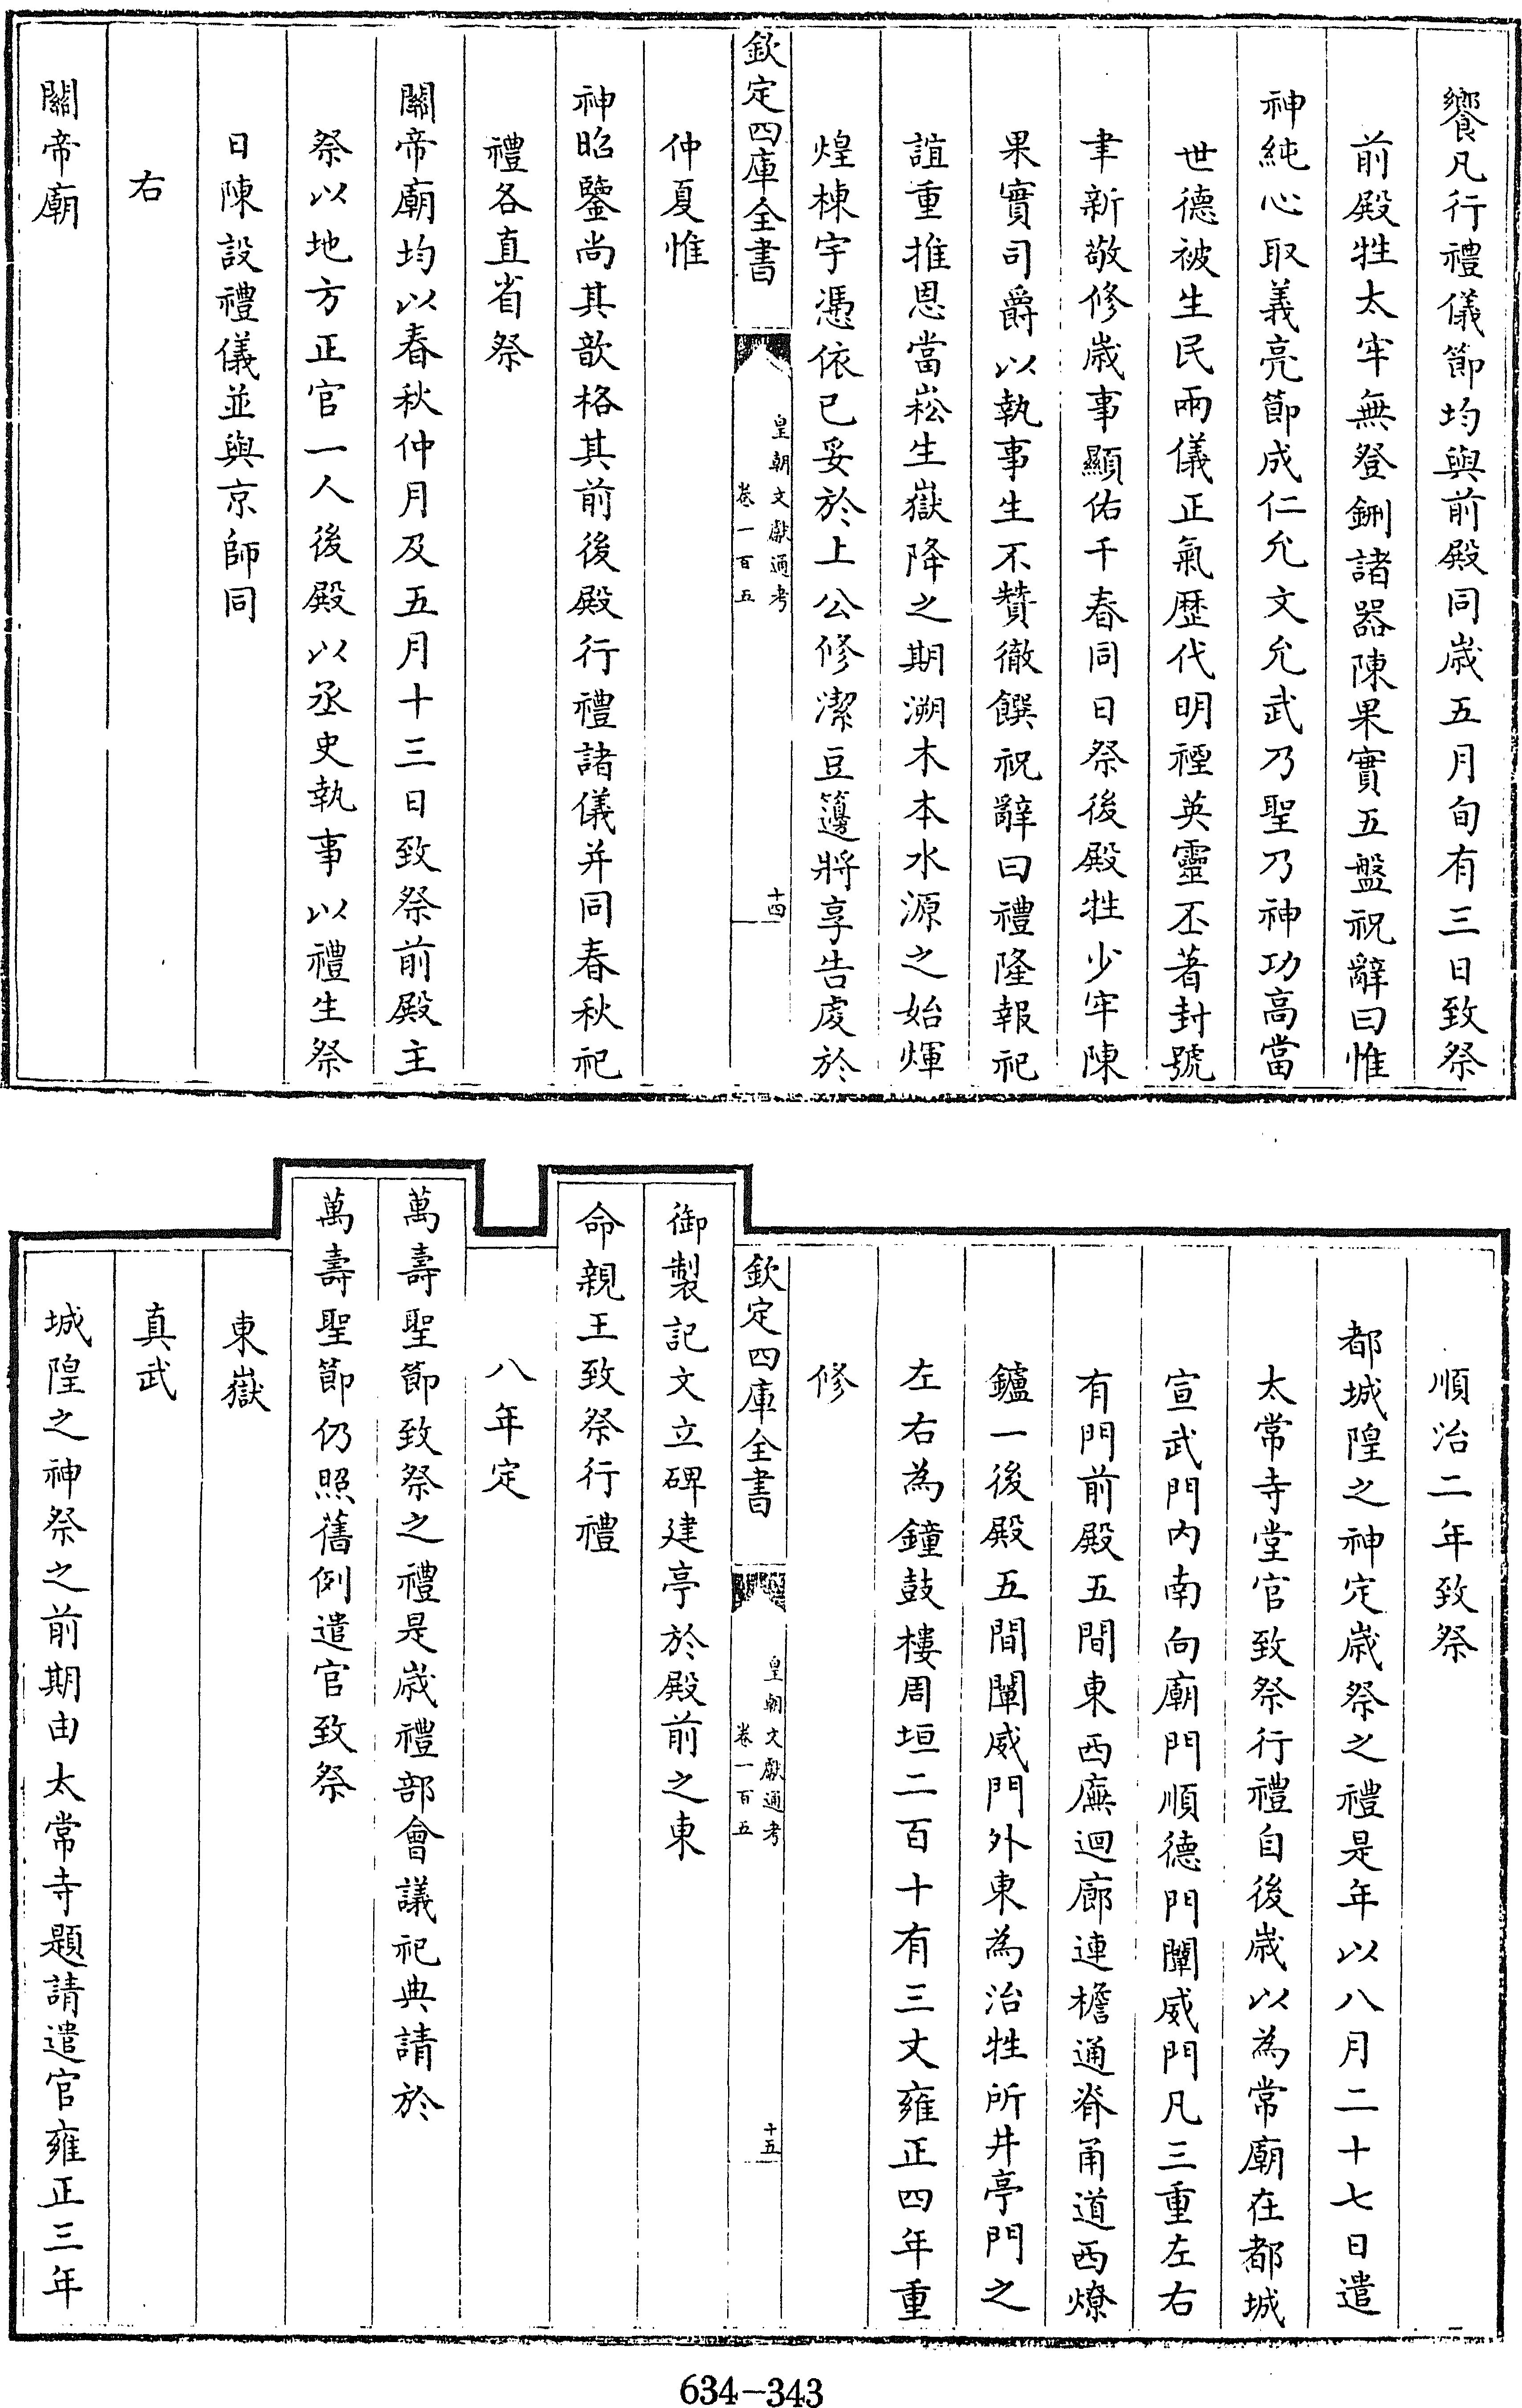 饗凡行禮儀節均與前殿同歲五月旬有三日致祭
前殿牲太牢無登鉶諸器陳果實五盤祝辭曰惟
神純心取義亮節成仁允文允武乃聖乃神功高當
世德被生民兩儀正氣歷代明禋英靈丕著封號
聿新敬修歲事顯佑千春同日祭後殿牲少牢陳
果實司爵以執事生不贊徹饌祝辭曰禮隆報祀
誼重推恩當崧生嶽降之期溯木本水源之始煇
煌棟宇憑依已妥於上公修潔豆籩將享告虔於
欽定四庫全書
皇朝文獻通考
卷一百五
十四
仲夏惟
神昭鑒尚其歆格其前後殿行禮諸儀并同春秋祀
禮各直省祭
關帝廟均以春秋仲月及五月十三日致祭前殿主
祭以地方正官一人後殿以丞史執事以禮生祭
日陳設禮儀並與京師同
右
關帝廟
順治二年致祭
都城隍之神定歲祭之禮是年以八月二十七日遣
太常寺堂官致祭行禮自後歲以為常廟在都城
宣武門內南向廟門順德門闡威門凡三重左右
有門前殿五間東西廡迴廊連檐通脊甬道西燎
鑪一後殿五間闡威門外東為治牲所井亭門之
左右為鐘鼓樓周垣二百十有三丈雍正四年重
修
欽定四庫全書
皇朝文獻通考
卷一百五
十五
御製記文立碑建亭於殿前之東
命親王致祭行禮
八年定
萬壽聖節致祭之禮是歲禮部會議祀典請於
萬壽聖節仍照舊例遣官致祭
東嶽
真武
城隍之神祭之前期由太常寺題請遣官雍正三年
634-343